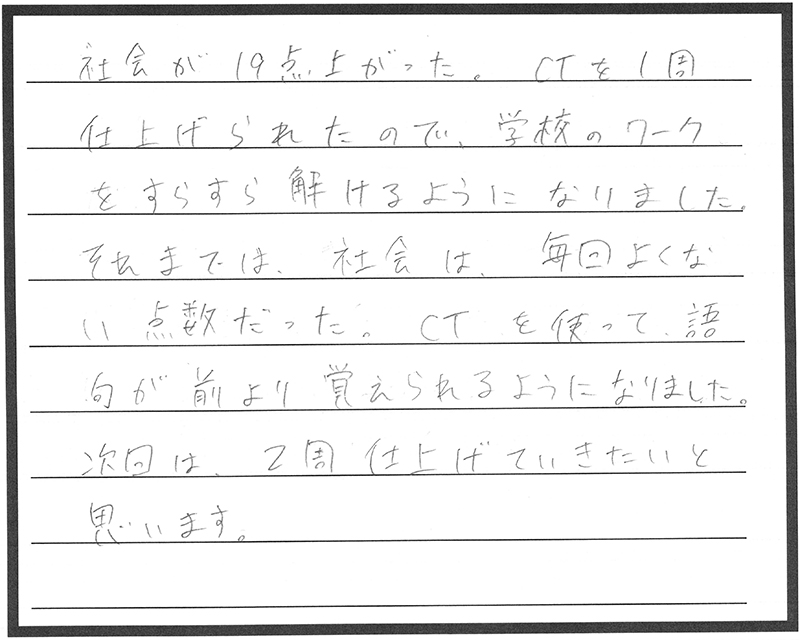 社会が19点上がった。 CTを1周
仕上げられたので、学校のワーク
をすらすら解けるようになりました。
それまでは、社会は、毎回よくな
い点数だった。 CTを使って、語
句が前より覚えられるようになりました。
次回は、2周仕上げていきたいと
思います。